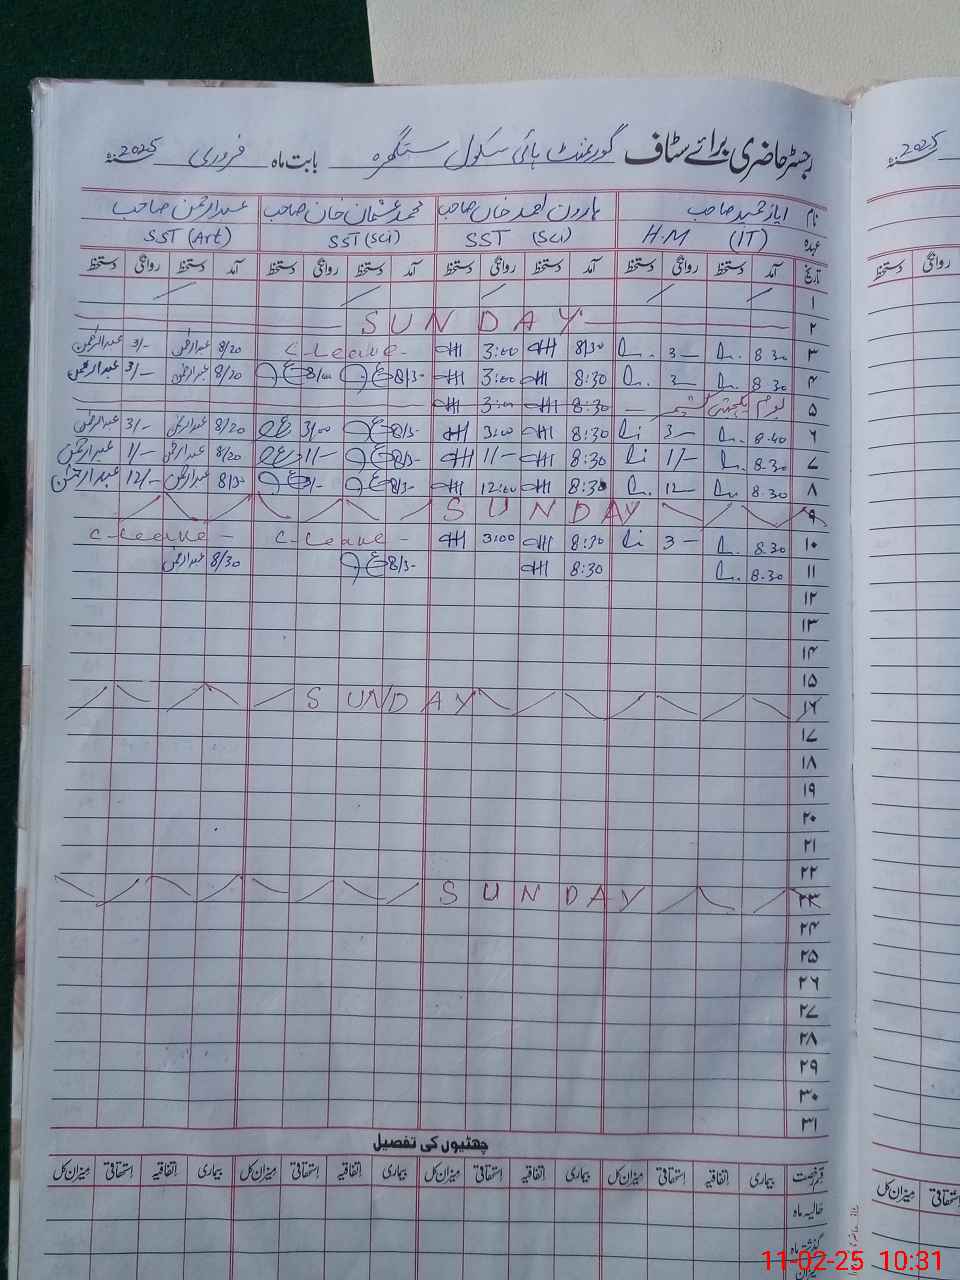 رجسٹر حاضری برائے سٹاف گورنمنٹ ہائی سکول ستگھرہ بابت ماہ فروری سنہ 2025
نام ایاز حمید صاحب ہارون احمد خان صاحب محمد عثمان خان صاحب عبدالرحمن صاحب
عہدہ H.M (IT) SST (Sci) SST (Sci) SST (Art)
تاریخ آمد دستخط روانگی دستخط آمد دستخط روانگی دستخط آمد دستخط روانگی دستخط آمد دستخط روانگی دستخط
۱
۲ SUNDAY
۳ 8.30 3– 8/30 3:00 C-Leave – 8/20 عبدالرحمن 3/- عبدالرحمن
۴ 8.30 3– 8:30 3:00 8/3- 8/00 8/20 عبدالرحمن 3/- عبدالرحمن
۵ یوم یکجہتی کشمیر 8:30 3:00
۶ 8.40 3– 8:30 3:00 8/3- 3/00 8/20 عبدالرحمن 3/- عبدالرحمن
۷ 8.30 1/- 8:30 1/- 8/3- 1/- 8/20 عبدالرحمن 1/- عبدالرحمن
۸ 8.30 12– 8:30 12:00 8/3- 8/30 عبدالرحمن 12/- عبدالرحمن
۹ SUNDAY
۱۰ 8.30 3– 8:30 3:00 C-Leave – C-Leave –
۱۱ 8.30 8:30 8/3- 8/30 عبدالرحمن
۱۲
۱۳
۱۴
۱۵
۱۶ SUNDAY
۱۷
۱۸
۱۹
۲۰
۲۱
۲۲
۲۳ SUNDAY
۲۴
۲۵
۲۶
۲۷
۲۸
۲۹
۳۰
۳۱
چھٹیوں کی تفصیل
قسم رخصت بیماری اتفاقیہ استحقاقی میزان کل بیماری اتفاقیہ استحقاقی میزان کل بیماری اتفاقیہ استحقاقی میزان کل بیماری اتفاقیہ استحقاقی میزان کل
حالیہ ماہ
گذشتہ ماہ
میزان
سنہ 2025
روانگی دستخط
استحقاقی میزان کل
11-02-25 10:31